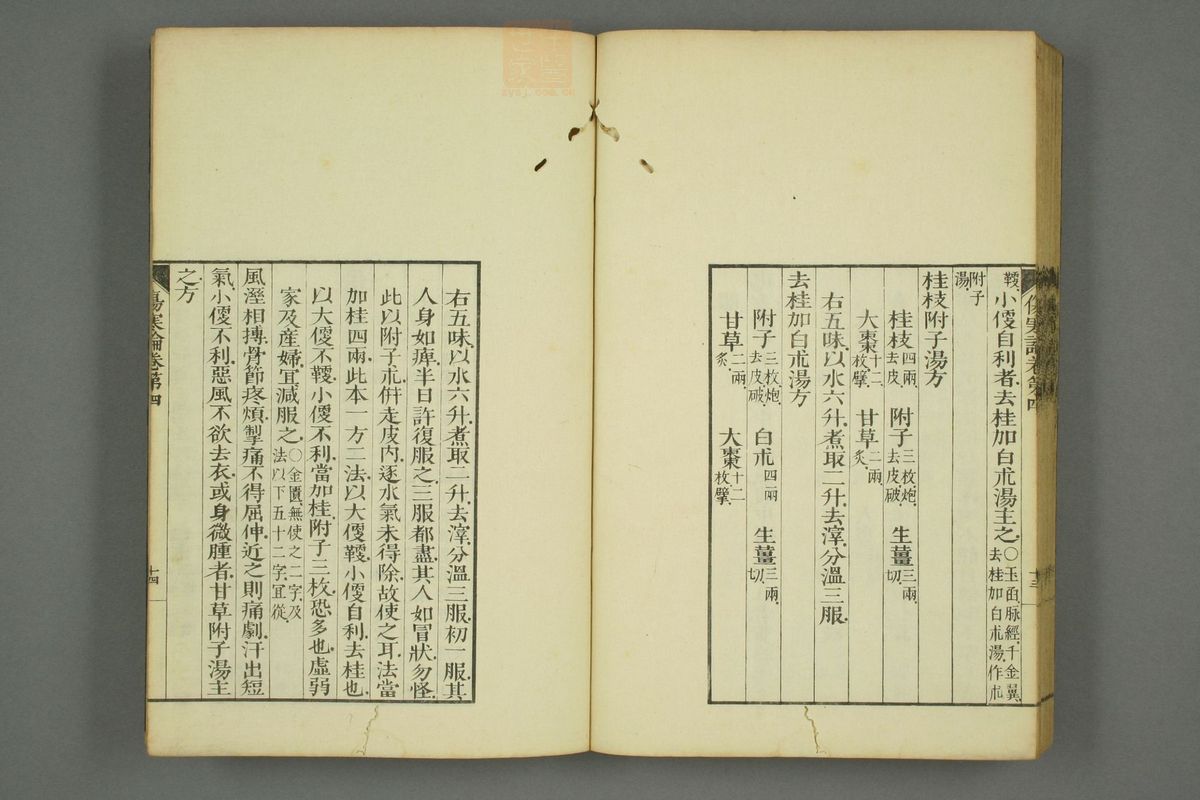 傷寒論卷第四
十三
鞕、小便自利者、去桂加白朮湯主之、○玉函脉經千金翼、去桂加白朮湯、作朮
附子湯
桂枝附子湯方
桂枝四兩、去皮 附子三枚炮、去皮破、 生薑三兩、切、
大棗十二枚擘、 甘草二兩、炙、
右五味、以水六升、煮取二升、去滓、分溫三服、
去桂加白朮湯方
附子三枚炮、去皮破、 白朮四兩 生薑三兩、切、
甘草二兩、炙、 大棗十二枚擘、
右五味、以水六升、煮取二升、去滓、分溫三服、初一服、其
人身如痺、半日許復服之、三服都盡、其人如冒狀、勿怪、
此以附子朮併走皮內、逐水氣未得除、故使之耳、法當
加桂四兩、此本一方二法、以大便鞕、小便自利、去桂也、
以大便不鞕、小便不利、當加桂、附子三枚、恐多也、虛弱
家及産婦、冝減服之、○金匱無使之二字、及法以下五十二字、冝從、
風溼相搏、骨節疼煩、掣痛不得屈伸、近之則痛劇、汗出短
氣、小便不利、惡風不欲去衣、或身微腫者、甘草附子湯主
之、方
傷寒論卷第四
十四
zysj.com.cn